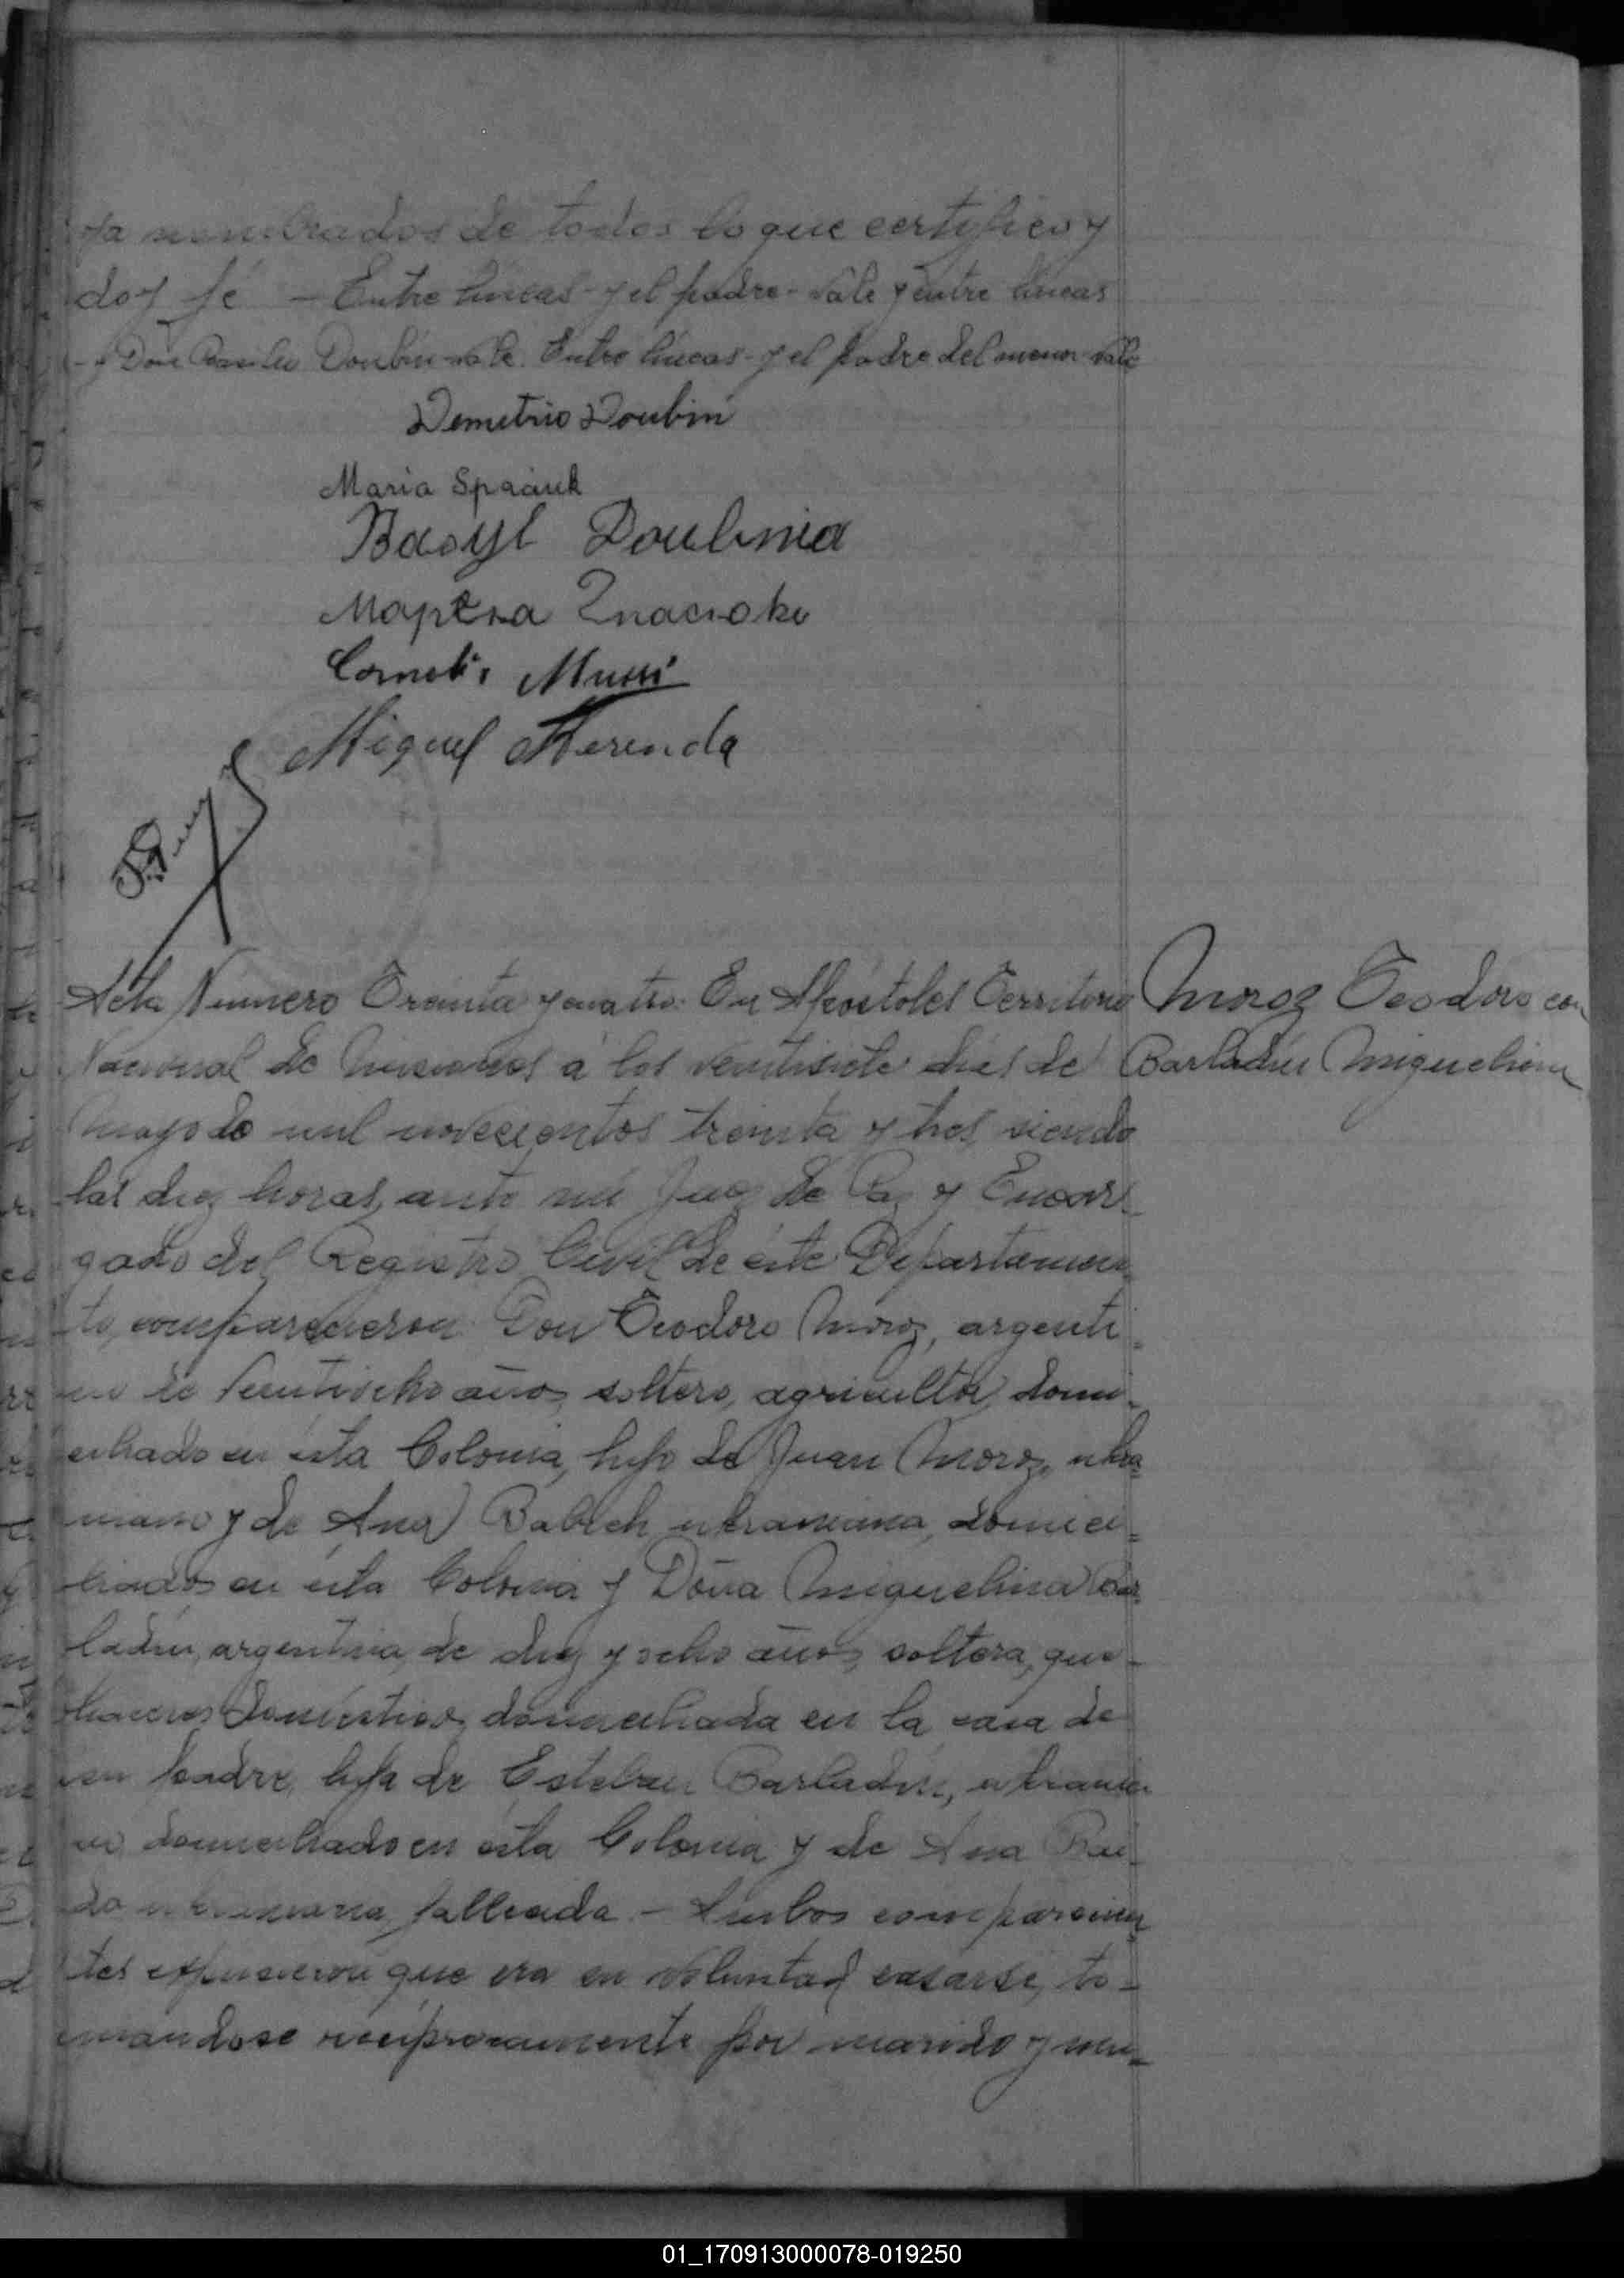 ya nombrados de todos lo que certifico y
doy fé - Entre líneas - y el padre - vale y entre líneas
- y Don Basilio Doubin - vale. Entre líneas - y el padre del menor vale
Demetrio Doubin
Maria Spaciuk
Basyl Doubnia
Corneli Mussi
Miguel Merenda
Acta Número Treinta y cuatro: En Apóstoles Territorio
Moroz Teodoro con
Nacional de Misiones á los veintisiete días de
Barladin Miguelina
Mayo de mil novecientos treinta y tres, siendo
las diez horas, ante mi Juez de Paz y Encar-
gado del Registro Civil de éste Departamen-
to, comparecieron: Don Teodoro Moroz, argenti-
no de veintiocho años, soltero, agricultor, domi-
ciliado en ésta Colonia, hijo de Juan Moroz, ukra-
niano y de Ana Babich, ukraniana, domici-
liados en ésta Colonia y Doña Miguelina Bar-
ladin, argentina, de diez y ocho años, soltera, que-
haceres domésticos, domiciliada en la casa de
su padre, hija de Esteban Barladin, ukrania-
no domiciliado en ésta Colonia y de Ana
ukraniana, fallecida. - Ambos comparecien-
tes expusieron que era su voluntad casarse, to-
mandose reciprocamente por marido y mu-
01_170913000078-019250